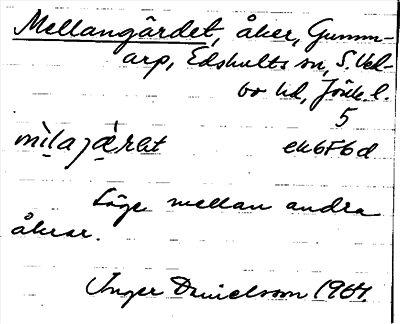 Mellangärdet, åker, Gumm-
arp, Edshults sn, S. Ved-
bo hd, Jönk. l.
5
ek6F6d
Läge mellan andra
åkrar.
Inger Danielsson 1964.